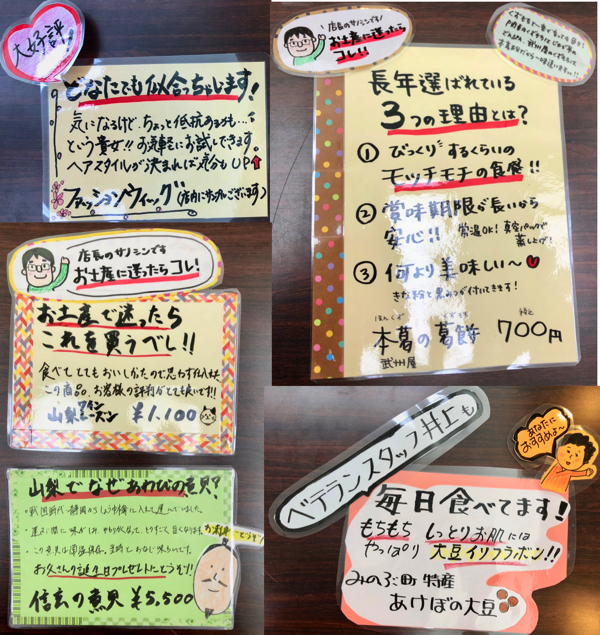 大好評!!
どなたでも似合っちゃいます!
気になるけど、ちょっと抵抗あるかも…
という貴女!! お気軽にお試しできます。
ヘアスタイルが決まれば気分もUP↑
ファッションウィッグ(店内にサンプルございます)
店長のサノシンです
お土産に迷ったら
コレ!
お土産で迷ったら
これを買うべし!!
食べてとてもおいしかったので思わず仕入れた
この商品、お客様の評判がとても良いです!!
山梨ワインレーズン ¥1,100
山梨でなぜあわびの煮貝?
お父さんの誕生日プレゼントにどうぞ!!
信玄の煮貝 ¥5,500
店長のサノシンです!
お土産に迷ったら
コレ!!
長年選ばれている
3つの理由とは?
① びっくりするくらいの
モッチモチの食感!!
② 賞味期限が長いから
安心!! 常温OK! 真空パックで
蒸し上げ!
③ 何より美味しい〜
きな粉と黒みつが付いてきます!
ほんくず くずもち 税込
本葛の葛餅 700円
武州屋
ベテランスタッフ井上も
あなたに
おすすめよ〜
毎日食べてます!
もちもち しっとりお肌には
やっぱり 大豆イソフラボン!!
みのぶ町 特産
あけぼの大豆